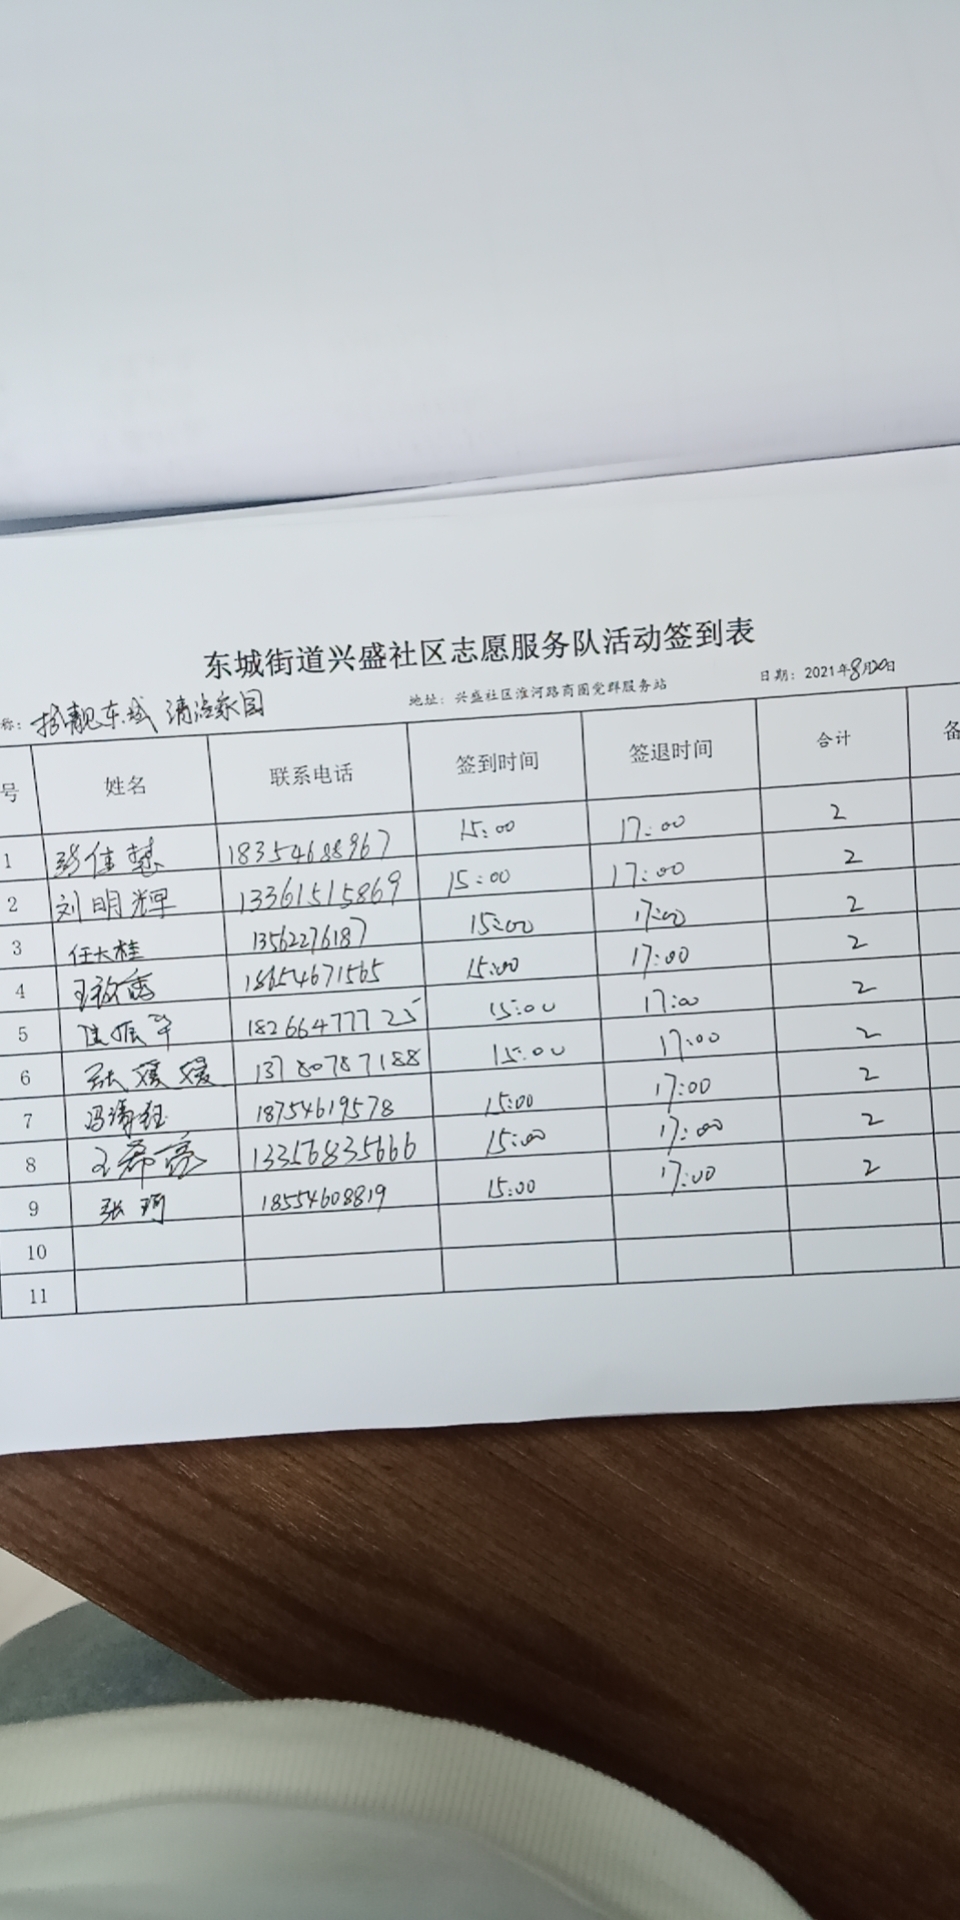 东城街道兴盛社区志愿服务队活动签到表
称: 扮靓东城 清洁家园 地址: 兴盛社区淮河路商圈党群服务站 日期: 2021年8月20日
号 姓名 联系电话 签到时间 签退时间 合计 备
1 张佳慧 18354688967 15:00 17:00 2
2 刘明辉 13361515869 15:00 17:00 2
3 任大桂 13562276187 15:00 17:00 2
4 王敏 18654671565 15:00 17:00 2
5 18266477725 15:00 17:00 2
6 张媛媛 13780787188 15:00 17:00 2
7 冯 18754619578 15:00 17:00 2
8 王希亮 13356835666 15:00 17:00 2
9 张珂 18554608819 15:00 17:00 2
10
11